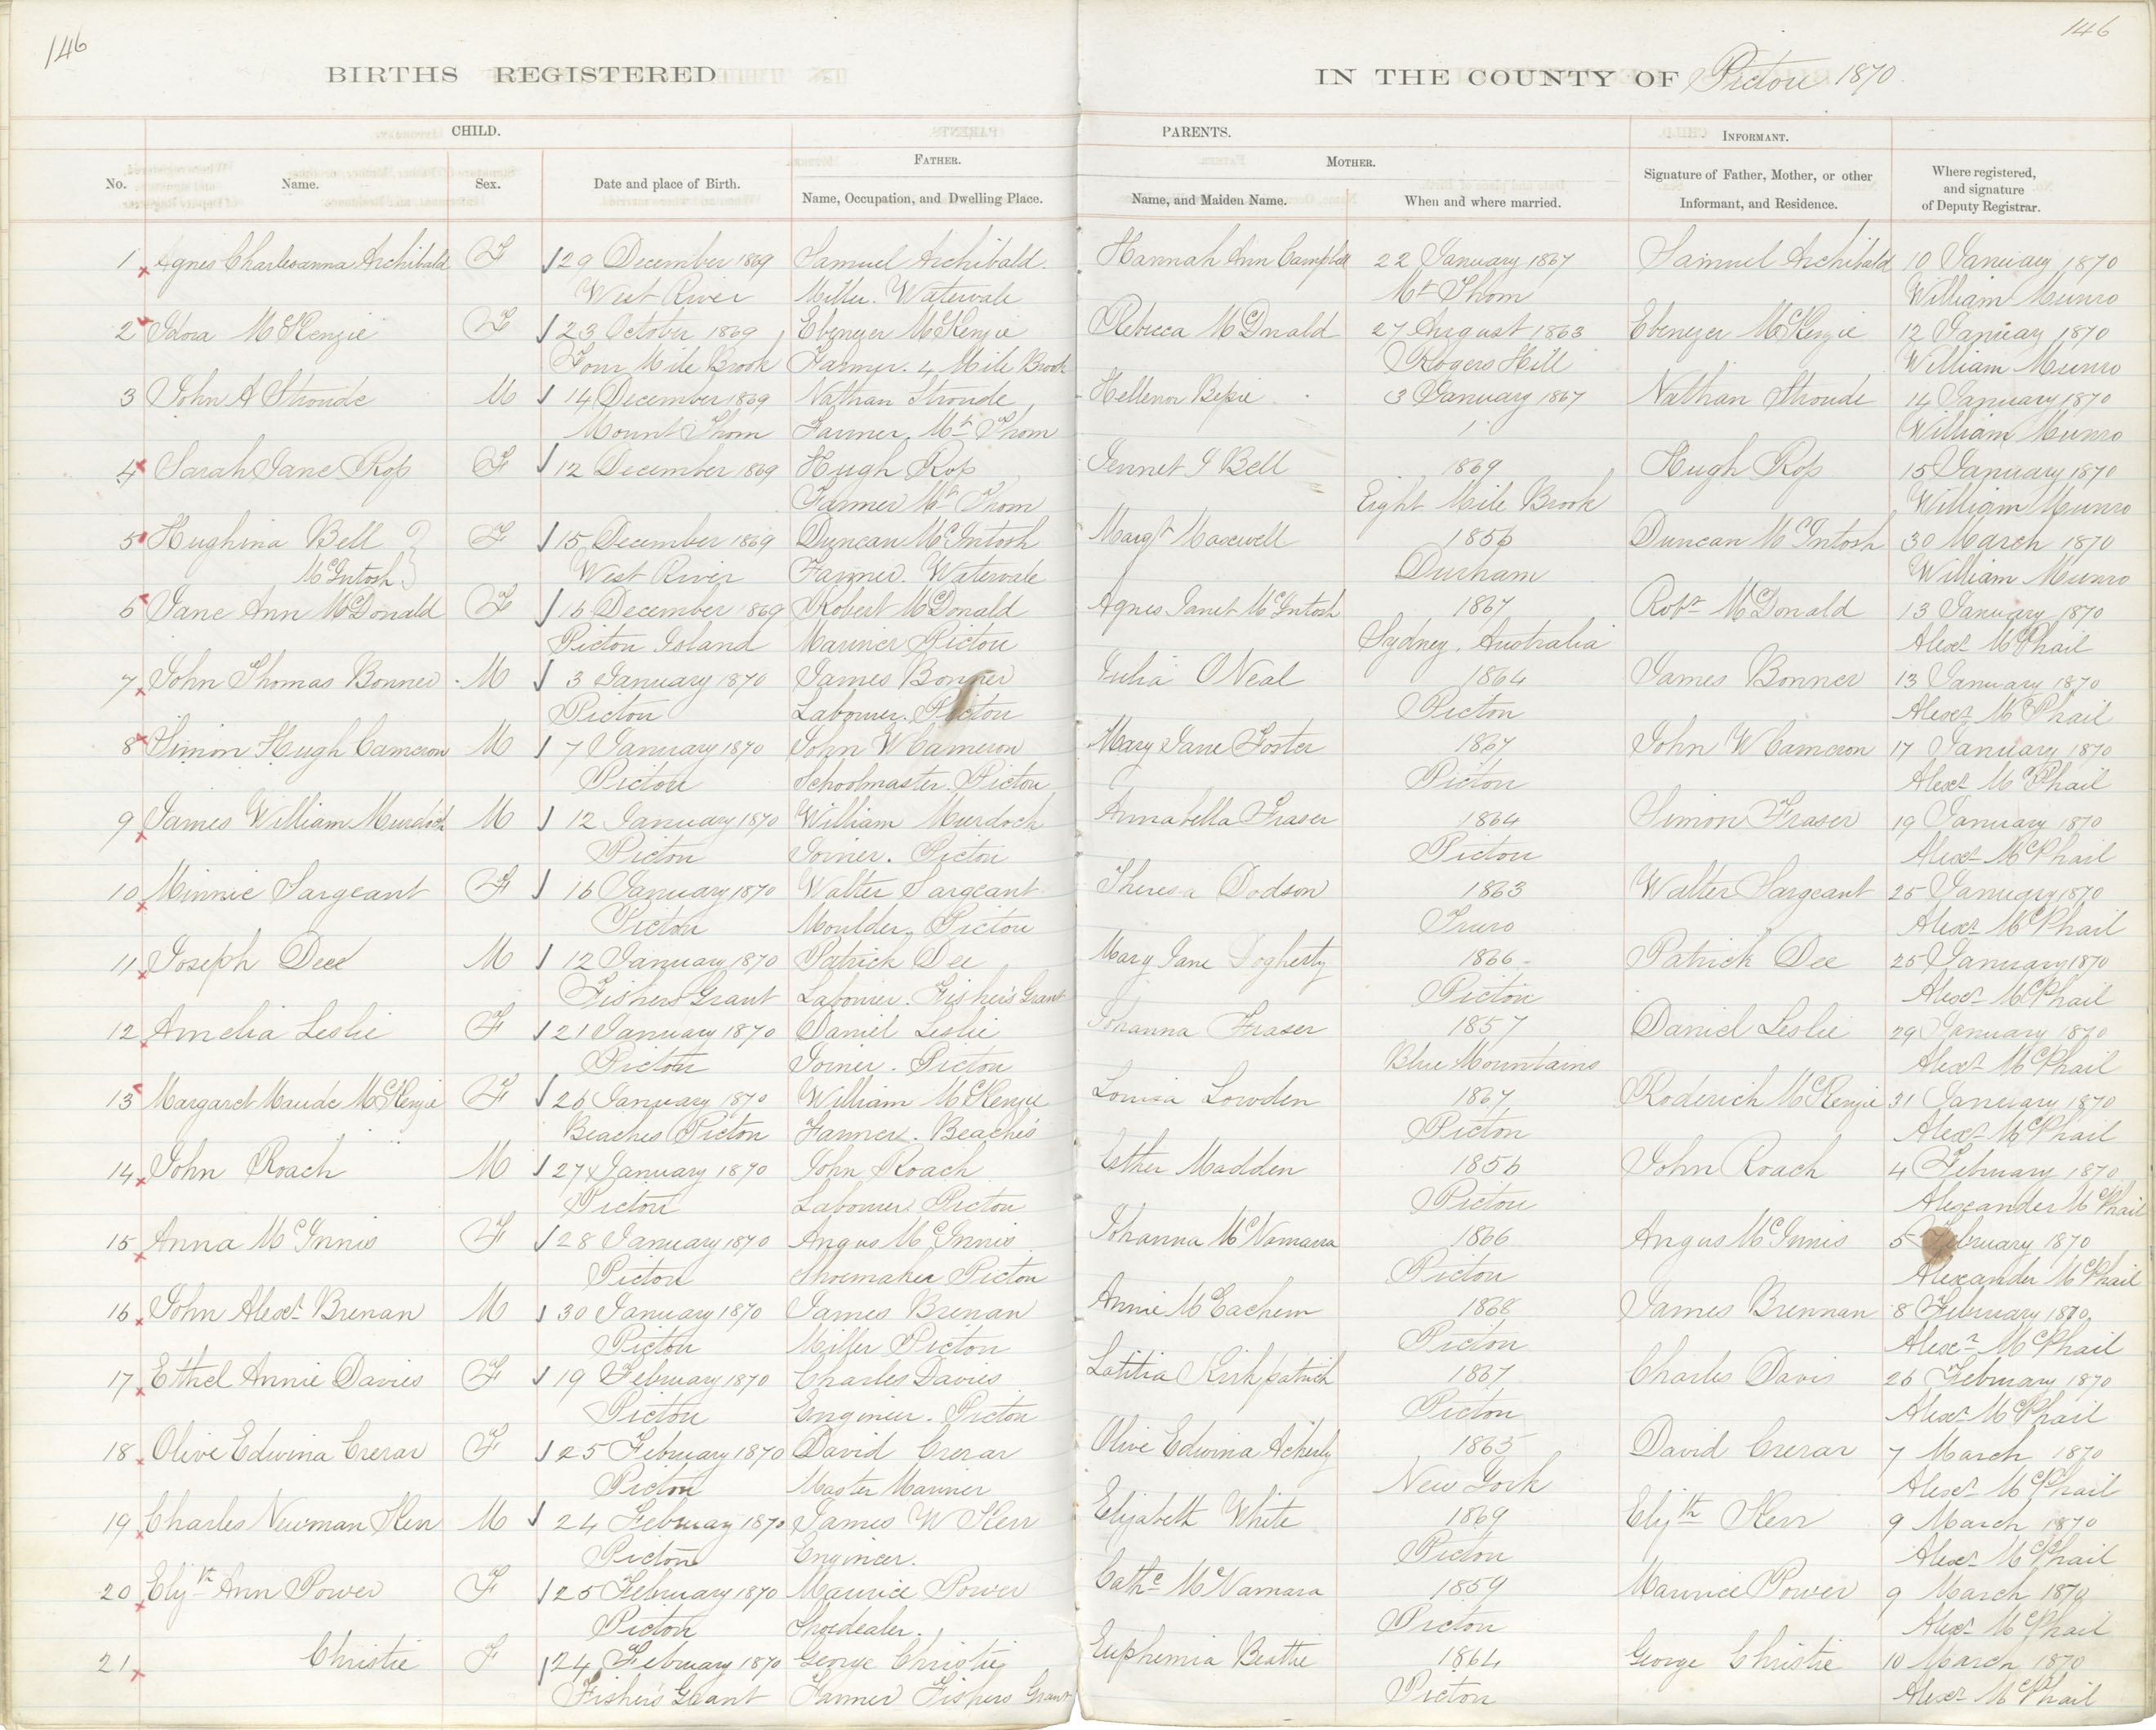 146
146
BIRTHS REGISTERED
IN THE COUNTY OF Pictou 1870
CHILD.
PARENTS.
INFORMANT.
FATHER.
MOTHER.
No. Name. Sex. Date and place of Birth. Name, Occupation, and Dwelling Place. Name, and Maiden Name. When and where married. Signature of Father, Mother, or other Informant, and Residence. Where registered, and signature of Deputy Registrar.
1 Agnes Charlesanna Archibald F 29 December 1869 Samuel Archibald Hannah Ann Campbell 22 January 1867 Samuel Archibald 10 January 1870
West River Miller. Watervale Mt Thom William Munro
2 Idora McKenzie F 23 October 1869 Ebenezer McKenzie Rebecca McDnald 27 August 1863 Ebenezer McKenzie 12 January 1870
Four Mile Brook Farmer. 4 Mile Brook Rogers Hill William Munro
3 John A Stroude M 14 December 1869 Nathan Stroude Hellenor 3 January 1867 Nathan Stroude 14 January 1870
Mount Thom Farmer. Mt Thom William Munro
4 Sarah Jane Ross F 12 December 1869 Hugh Ross Jennet I Bell 1869 Hugh Ross 15 January 1870
Farmer Mt Thom Eight Mile Brook William Munro
5 Hughina Bell F 15 December 1869 Duncan McIntosh Margt Maxwell 1856 Duncan McIntosh 30 March 1870
McIntosh West River Farmer. Watervale Durham William Munro
6 Jane Ann McDonald F 16 December 1869 Robert McDonald Agnes Janet McIntosh 1867 Robt McDonald 13 January 1870
Pictou Island Mariner Pictou Sydney, Australia Alexr McPhail
7 John Thomas Bonner M 3 January 1870 James Bonner Julia ONeal 1864 James Bonner 13 January 1870
Pictou Labourer. Pictou Pictou Alexr McPhail
8 Simon Hugh Cameron M 7 January 1870 John W Cameron Mary Jane Foster 1867 John W Cameron 17 January 1870
Pictou Schoolmaster. Pictou Pictou Alexr McPhail
9 James William Murdoch M 12 January 1870 William Murdoch Annabella Fraser 1864 Simon Fraser 19 January 1870
Pictou Joiner. Pictou Pictou Alexr McPhail
10 Minnie Sargeant F 16 January 1870 Walter Sargeant Theresa Dodson 1863 Walter Sargeant 25 January 1870
Pictou Moulder, Pictou Truro Alexr McPhail
11 Joseph Dee M 12 January 1870 Patrick Dee Mary Jane Dogherty 1866 Patrick Dee 25 January 1870
Fishers Grant Labourer. Fisher's Grant Pictou Alexr McPhail
12 Amelia Leslie F 21 January 1870 Daniel Leslie Johanna Fraser 1857 Daniel Leslie 29 January 1870
Pictou Joiner. Pictou Blue Mountains Alexr McPhail
13 Margaret Maude McKenzie F 26 January 1870 William McKenzie Louisa Lowden 1867 Roderick McKenzie 31 January 1870
Beaches Pictou Farmer. Beaches Pictou Alexr McPhail
14 John Roach M 27 January 1870 John Roach Esther Madden 1856 John Roach 4 February 1870
Pictou Labourer Pictou Pictou Alexander McPhail
15 Anna McInnis F 28 January 1870 Angus McInnis Johanna McNamara 1866 Angus McInnis 5 February 1870
Pictou Shoemaker Pictou Pictou Alexander McPhail
16 John Alexr Brenan M 30 January 1870 James Brenan Annie McEachern 1868 James Brennan 8 February 1870
Pictou Miller Pictou Pictou Alexr McPhail
17 Ethel Annie Davies F 19 February 1870 Charles Davies Latitia Kirkpatrick 1867 Charles Davis 26 February 1870
Pictou Engineer. Pictou Pictou Alexr McPhail
18 Olive Edwina Crerar F 25 February 1870 David Crerar Olive Edwina Ackerly 1865 David Crerar 7 March 1870
Pictou Master Mariner New York Alexr McPhail
19 Charles Newman Kerr M 24 February 1870 James W Kerr Elizabeth White 1869 Elizth Kerr 9 March 1870
Pictou Engineer. Pictou Alexr McPhail
20 Elizth Ann Power F 25 February 1870 Maurice Power Cathe McNamara 1859 Maurice Power 9 March 1870
Pictou Shoedealer. Pictou Alexr McPhail
21 Christie F 24 February 1870 George Christie Euphemia Beattie 1864 George Christie 10 March 1870
Fisher's Grant Farmer Fishers Grant Pictou Alexr McPhail